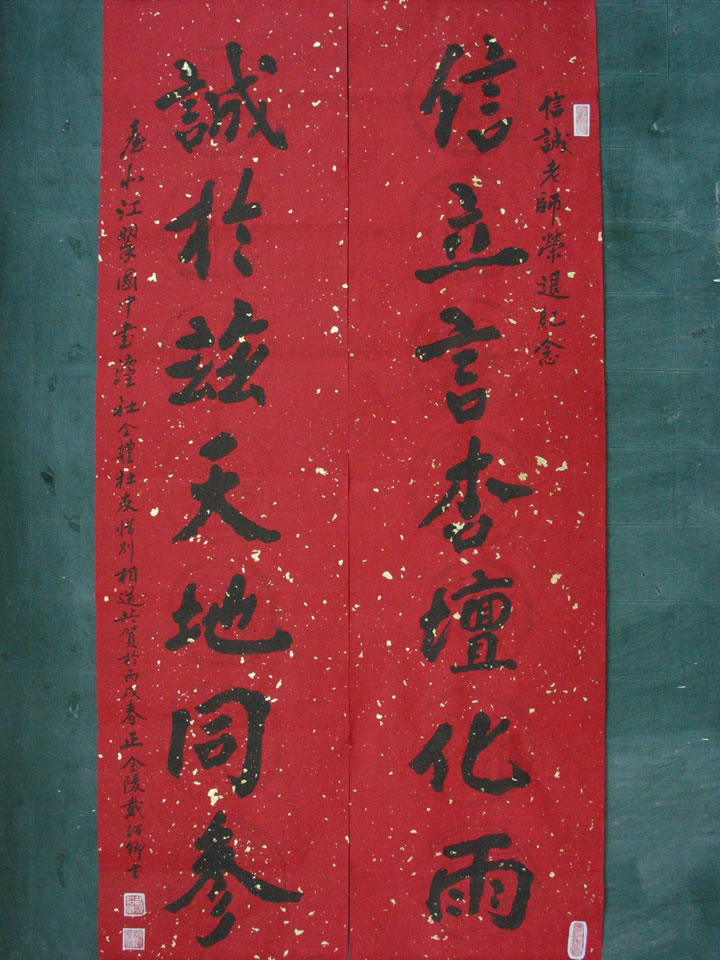 信誠老師榮退紀念
信立言杏壇化雨
誠於茲天地同參
臺北江翠國中書澐社全體社友惜別相送共賀於丙戌春正金陵戴紹卿書